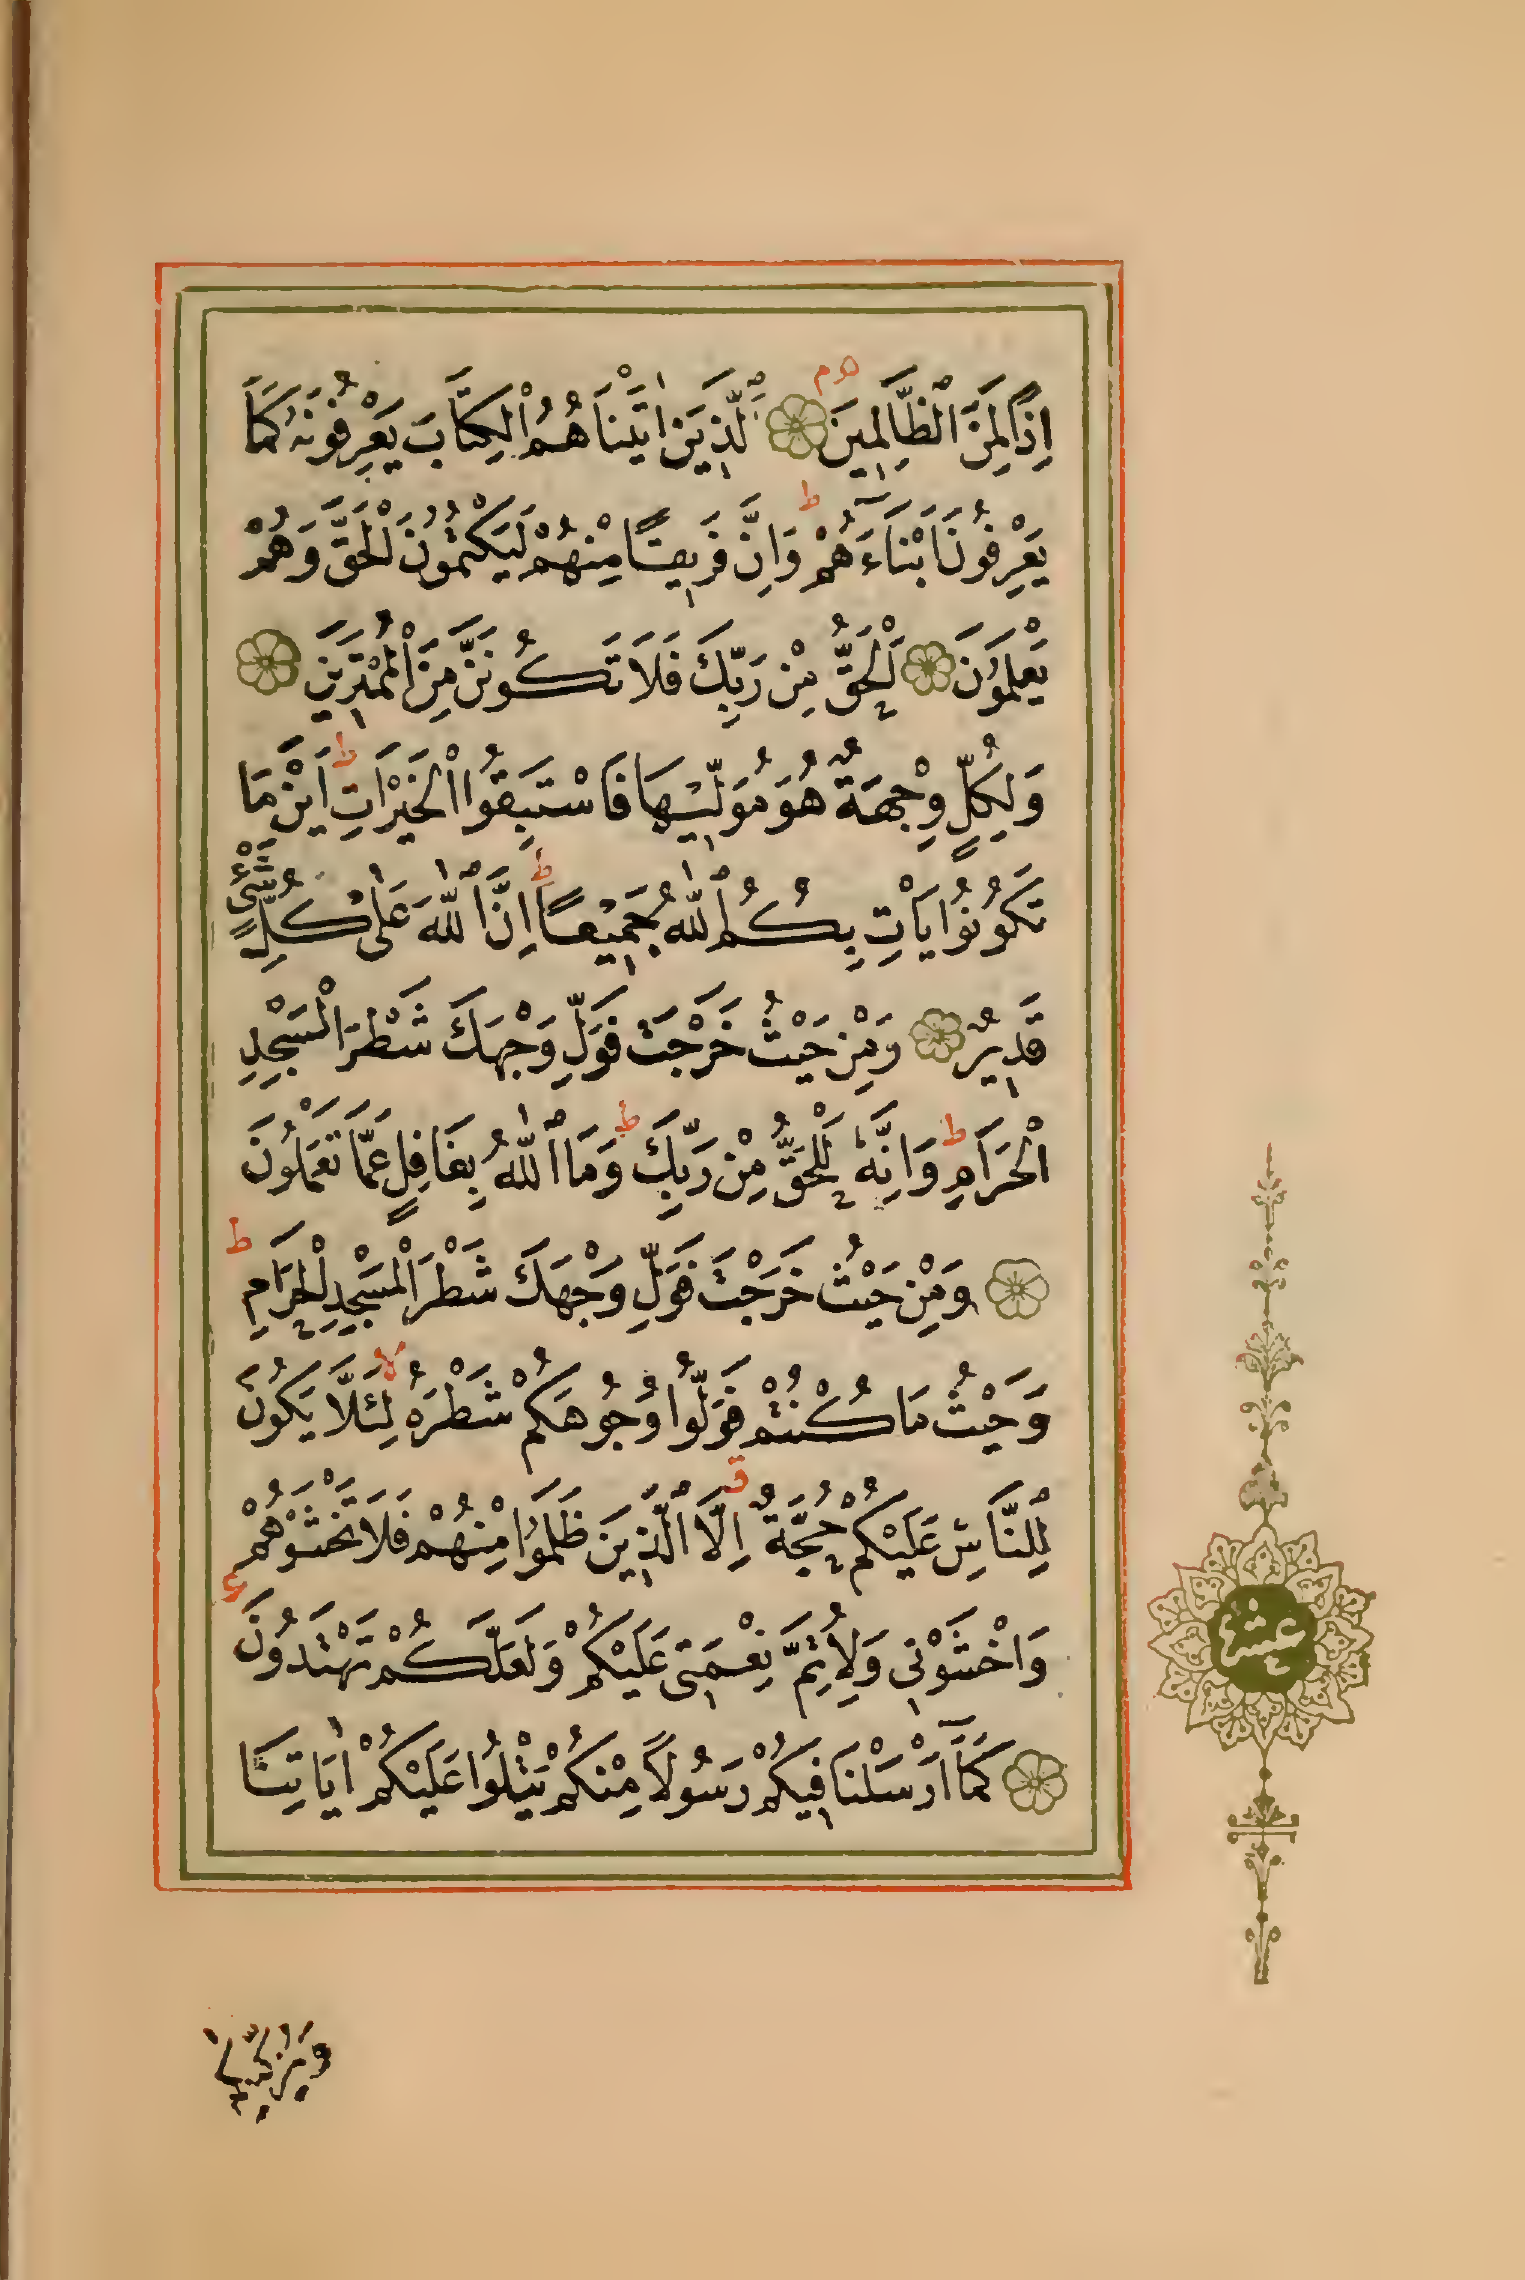 اِذًا لَمِنَ الظَّالِمِينَ ۞ اَلَّذِينَ اٰتَيْنَاهُمُ الْكِتَابَ يَعْرِفُونَهُ كَمَا
يَعْرِفُونَ اَبْنَاءَهُمْ ط وَاِنَّ فَرِيقًا مِنْهُمْ لَيَكْتُمُونَ الْحَقَّ وَهُمْ
يَعْلَمُونَ ۞ اَلْحَقُّ مِنْ رَبِّكَ فَلَا تَكُونَنَّ مِنَ الْمُمْتَرِينَ ۞
وَلِكُلٍّ وِجْهَةٌ هُوَ مُوَلِّيهَا فَاسْتَبِقُوا الْخَيْرَاتِ ط اَيْنَ مَا
تَكُونُوا يَاْتِ بِكُمُ اللّٰهُ جَمِيعًا ط اِنَّ اللّٰهَ عَلٰى كُلِّ شَيْءٍ
قَدِيرٌ ۞ وَمِنْ حَيْثُ خَرَجْتَ فَوَلِّ وَجْهَكَ شَطْرَ الْمَسْجِدِ
الْحَرَامِ ط وَاِنَّهُ لَلْحَقُّ مِنْ رَبِّكَ ط وَمَا اللّٰهُ بِغَافِلٍ عَمَّا تَعْمَلُونَ
۞ وَمِنْ حَيْثُ خَرَجْتَ فَوَلِّ وَجْهَكَ شَطْرَ الْمَسْجِدِ الْحَرَامِ ط
وَحَيْثُ مَا كُنْتُمْ فَوَلُّوا وُجُوهَكُمْ شَطْرَهُ لا لِئَلَّا يَكُونَ
لِلنَّاسِ عَلَيْكُمْ حُجَّةٌ ق اِلَّا الَّذِينَ ظَلَمُوا مِنْهُمْ فَلَا تَخْشَوْهُمْ
وَاخْشَوْنِي وَلِاُتِمَّ نِعْمَتِي عَلَيْكُمْ وَلَعَلَّكُمْ تَهْتَدُونَ
۞ كَمَا اَرْسَلْنَا فِيكُمْ رَسُولًا مِنْكُمْ يَتْلُوا عَلَيْكُمْ اٰيَاتِنَا
عشر
وَيُزَكِّيكُمْ